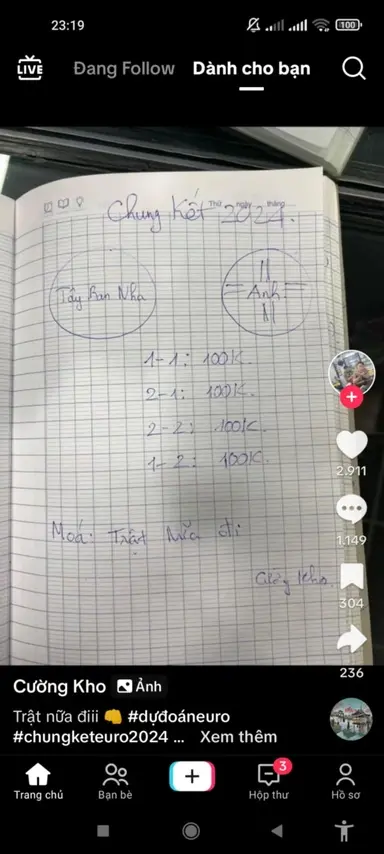 23:19
100
LIVE
Đang Follow
Dành cho bạn
Chung Kết 2024.
Thứ ngày tháng
Tây Ban Nha
Anh
1-1: 100K.
2-1: 100K.
2-2: 100K.
1-2: 100K.
Moá: Trật Nữa đi
Kho.
2.911
1.149
304
236
Cường Kho
Ảnh
Trật nữa điii 👊 #dựđoáneuro
#chungketeuro2024 ... Xem thêm
3
Trang chủ
Bạn bè
Hộp thư
Hồ sơ